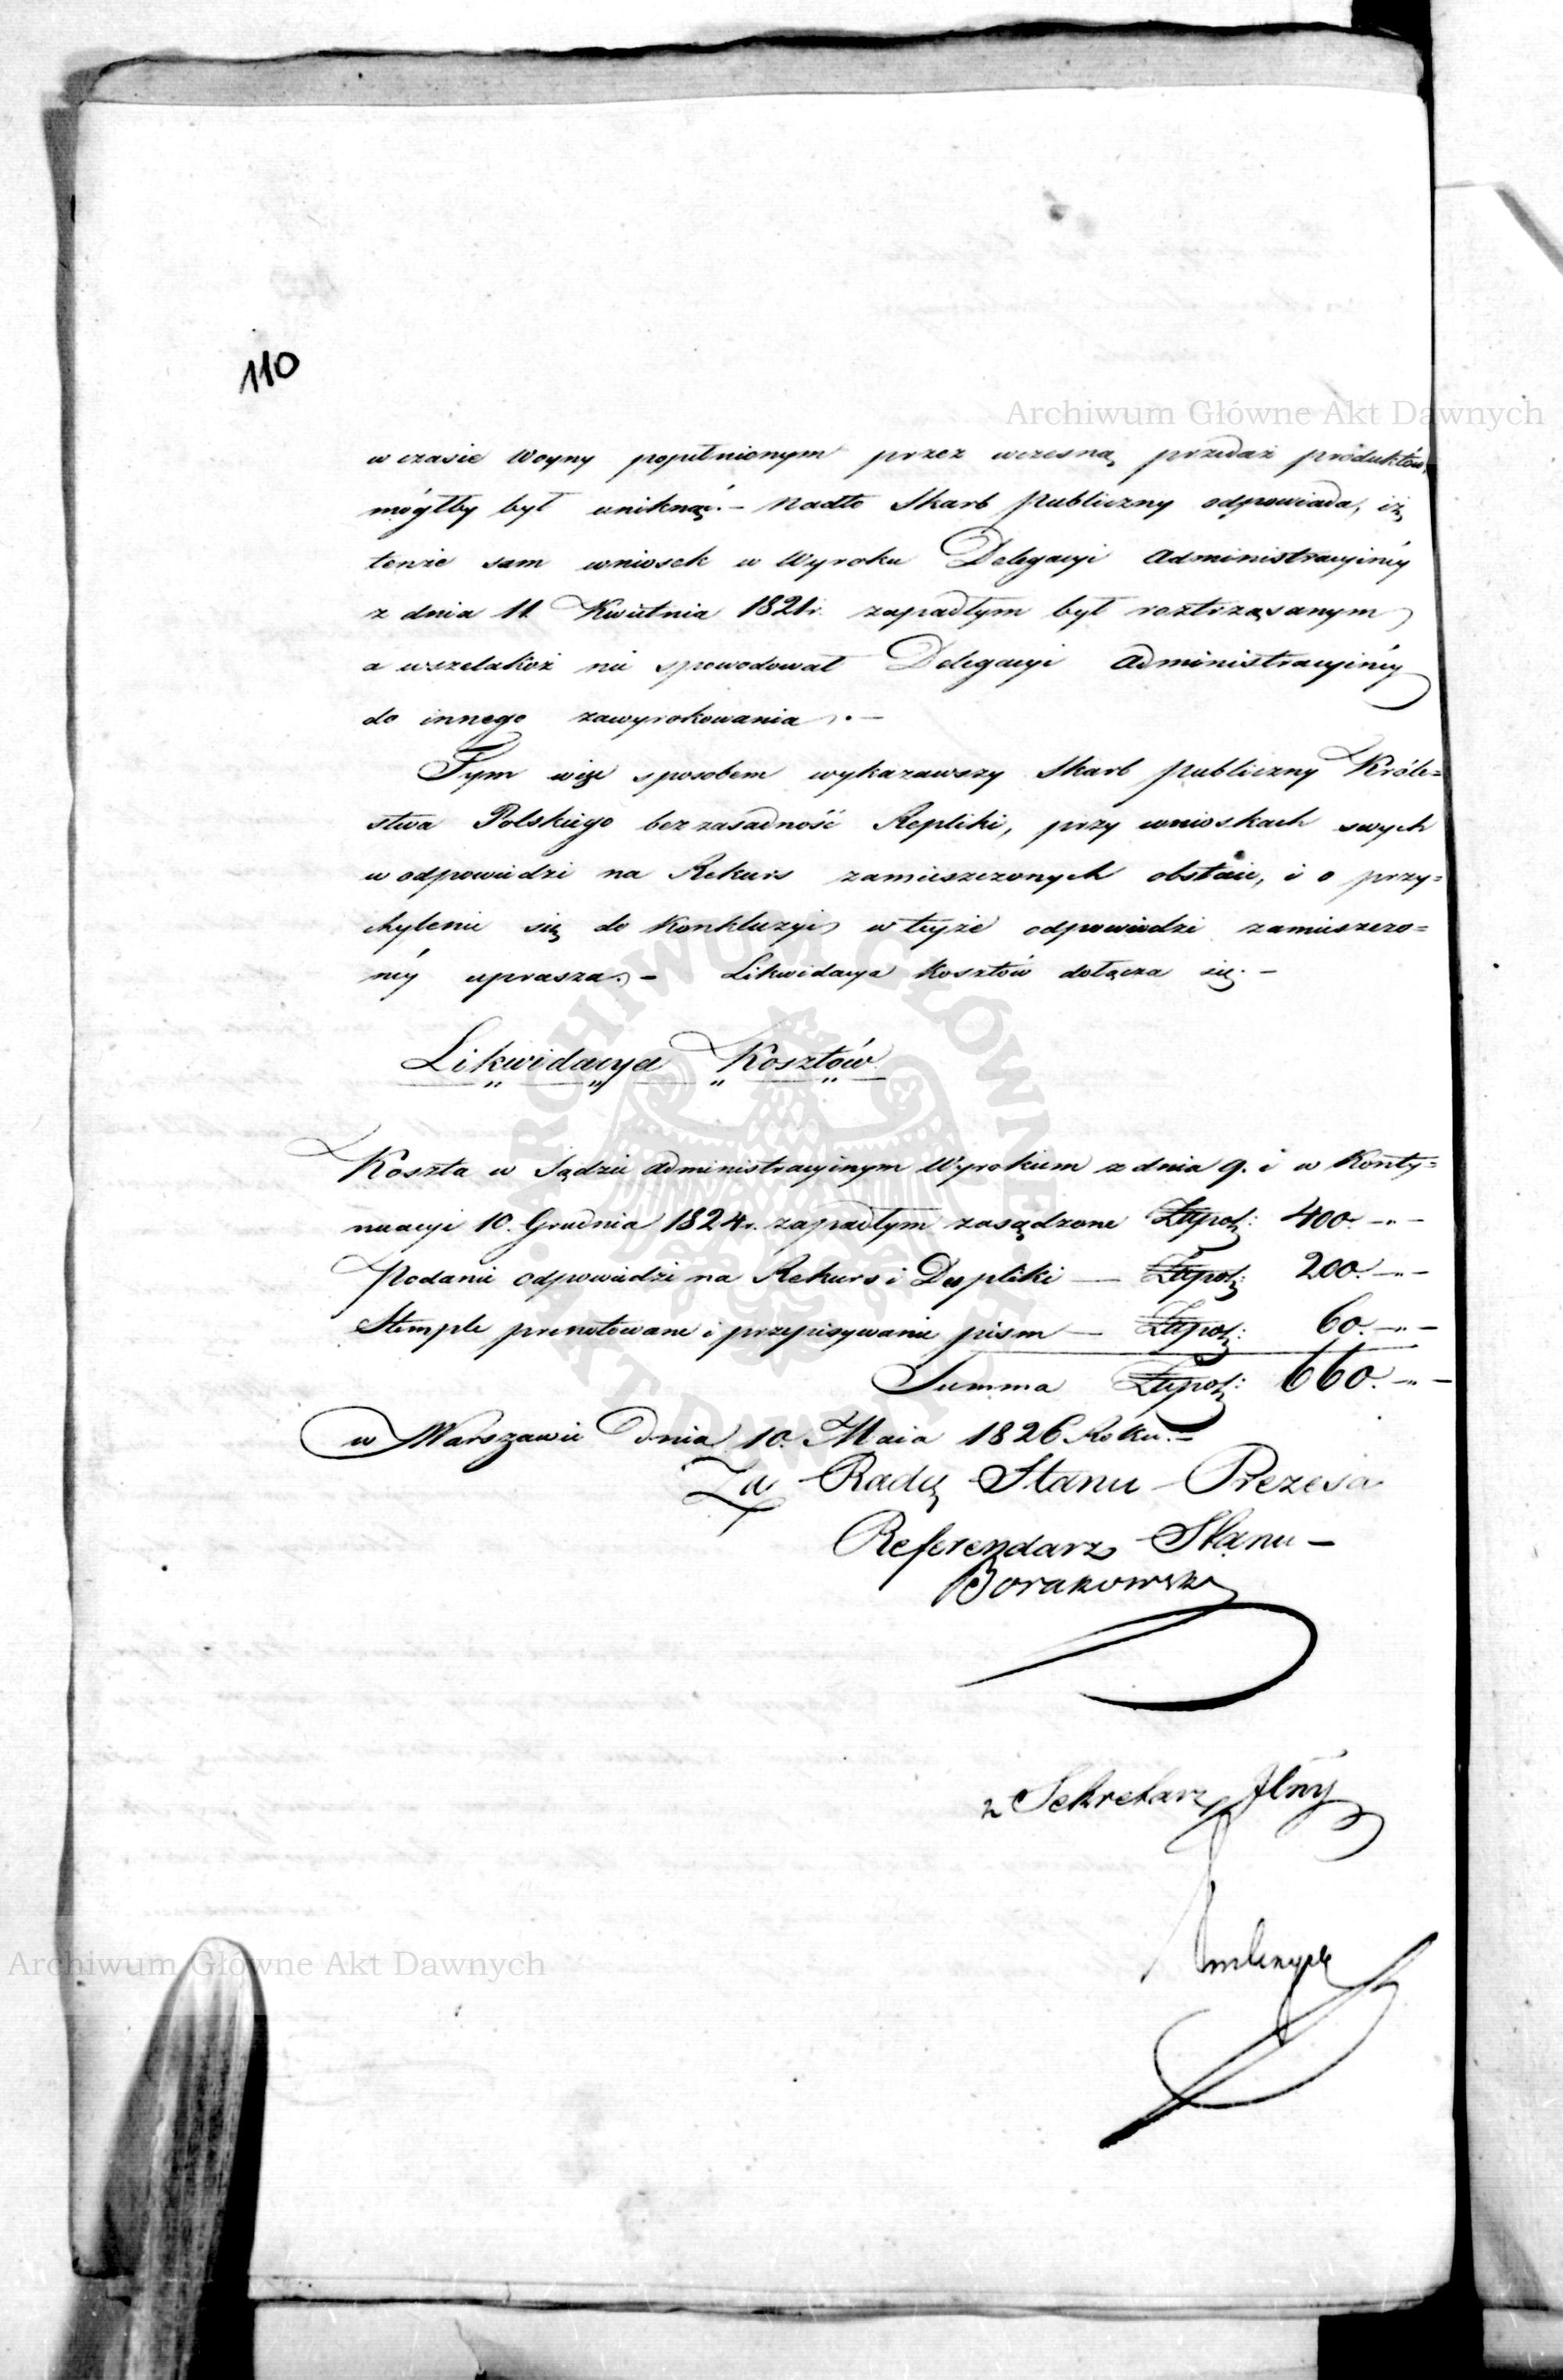 110
Archiwum Główne Akt Dawnych
w czasie Woyny popełnionym przez wczesną przedaż produktów,
mógłby był uniknąć.– Nadto Skarb Publiczny odpowiada, iż
tenże sam wniosek w Wyroku Delegacyi Administracyinéy
z dnia 11 Kwietnia 1821r. zapadłym był roztrząsanym
a wszelakoż nie spowodował Delegacyi Administracyinéy
do innego zawyrokowania.–
Tym więc sposobem wykazawszy Skarb Publiczny Króle=
stwa Polskiego bezzasadność Repliki, przy wnioskach swych
w odpowiedzi na Rekurs zamieszczonych obstaie, i o przy=
chylenie się do Konkluzyi w teyże odpowiedzi zamieszczo=
néy uprasza.– Likwidacya Kosztów dołącza się.–
Likwidacya Kosztów
Koszta w Sądzie Administracyinym Wyrokiem z dnia 9. i w Konty=
nuacyi 10. Grudnia 1824r. zapadłym zasądzone Złpol: 400.-"-
Podanie odpowiedzi na Rekurs i Dupliki — Złpol: 200.-"-
Stemple prenotowane i przepisywanie pism — Złpol: 60.-"-
Summa Złpol: 660.-"-
w Warszawie Dnia 10. Maia 1826 Roku.–
Za Radcę Stanu Prezesa
Referendarz Stanu –
Borakowski
z Sekretarz Jlny
Archiwum Główne Akt Dawnych
ARCHIWUM GŁÓWNE · AKT DAWNYCH ·